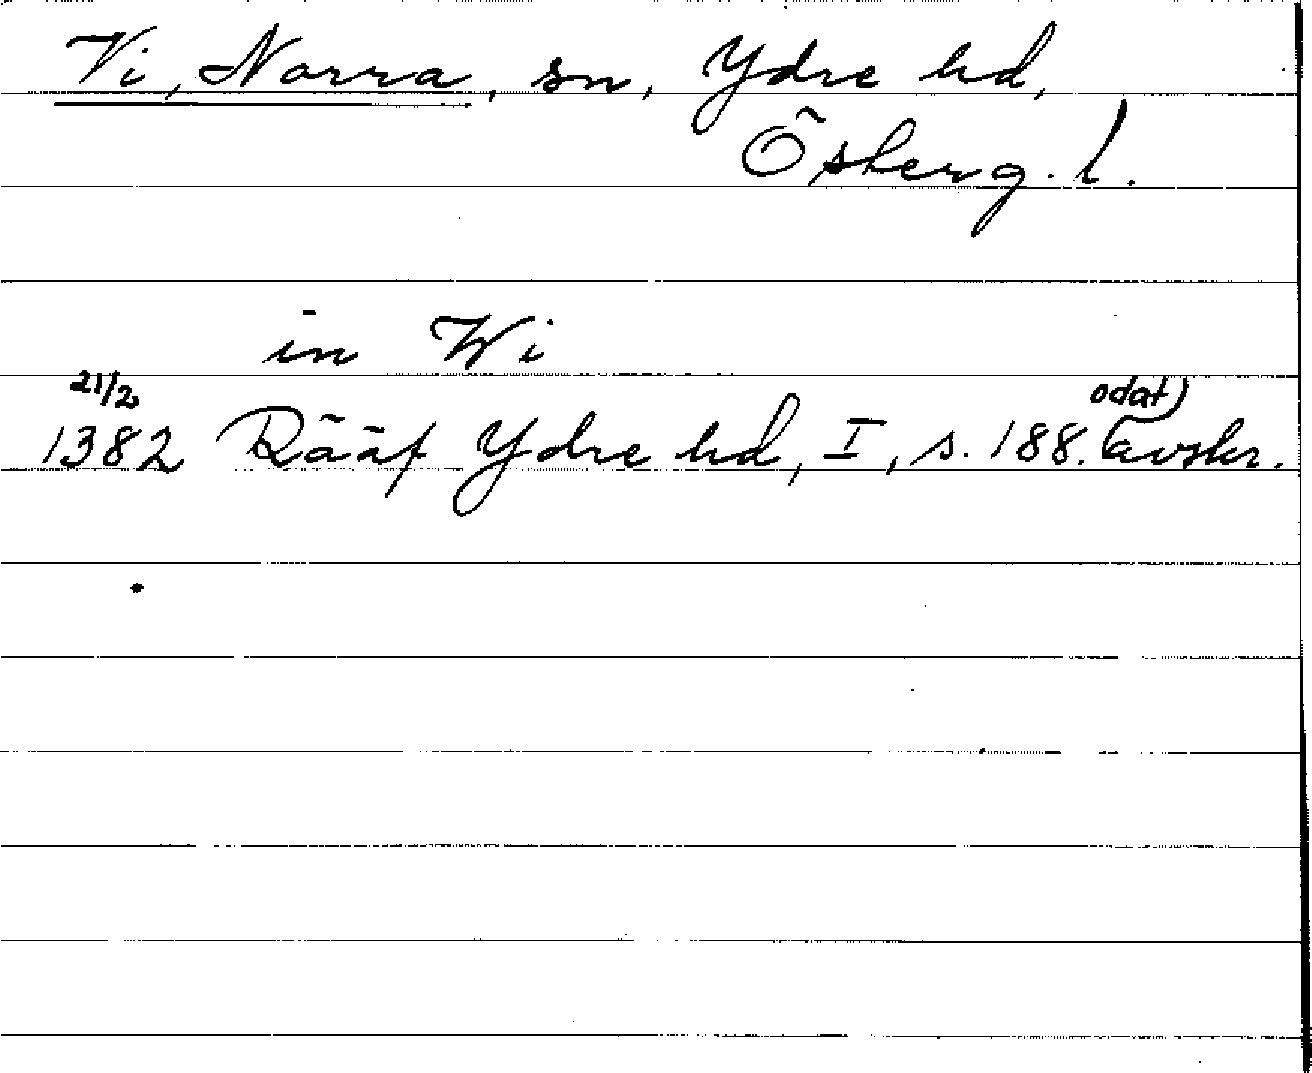 Vi, Norra, sn, Ydre hd,
Österg. l.
in Wi
21/2 odat)
1382 Rääf Ydre hd, I, s. 188. (avskr.